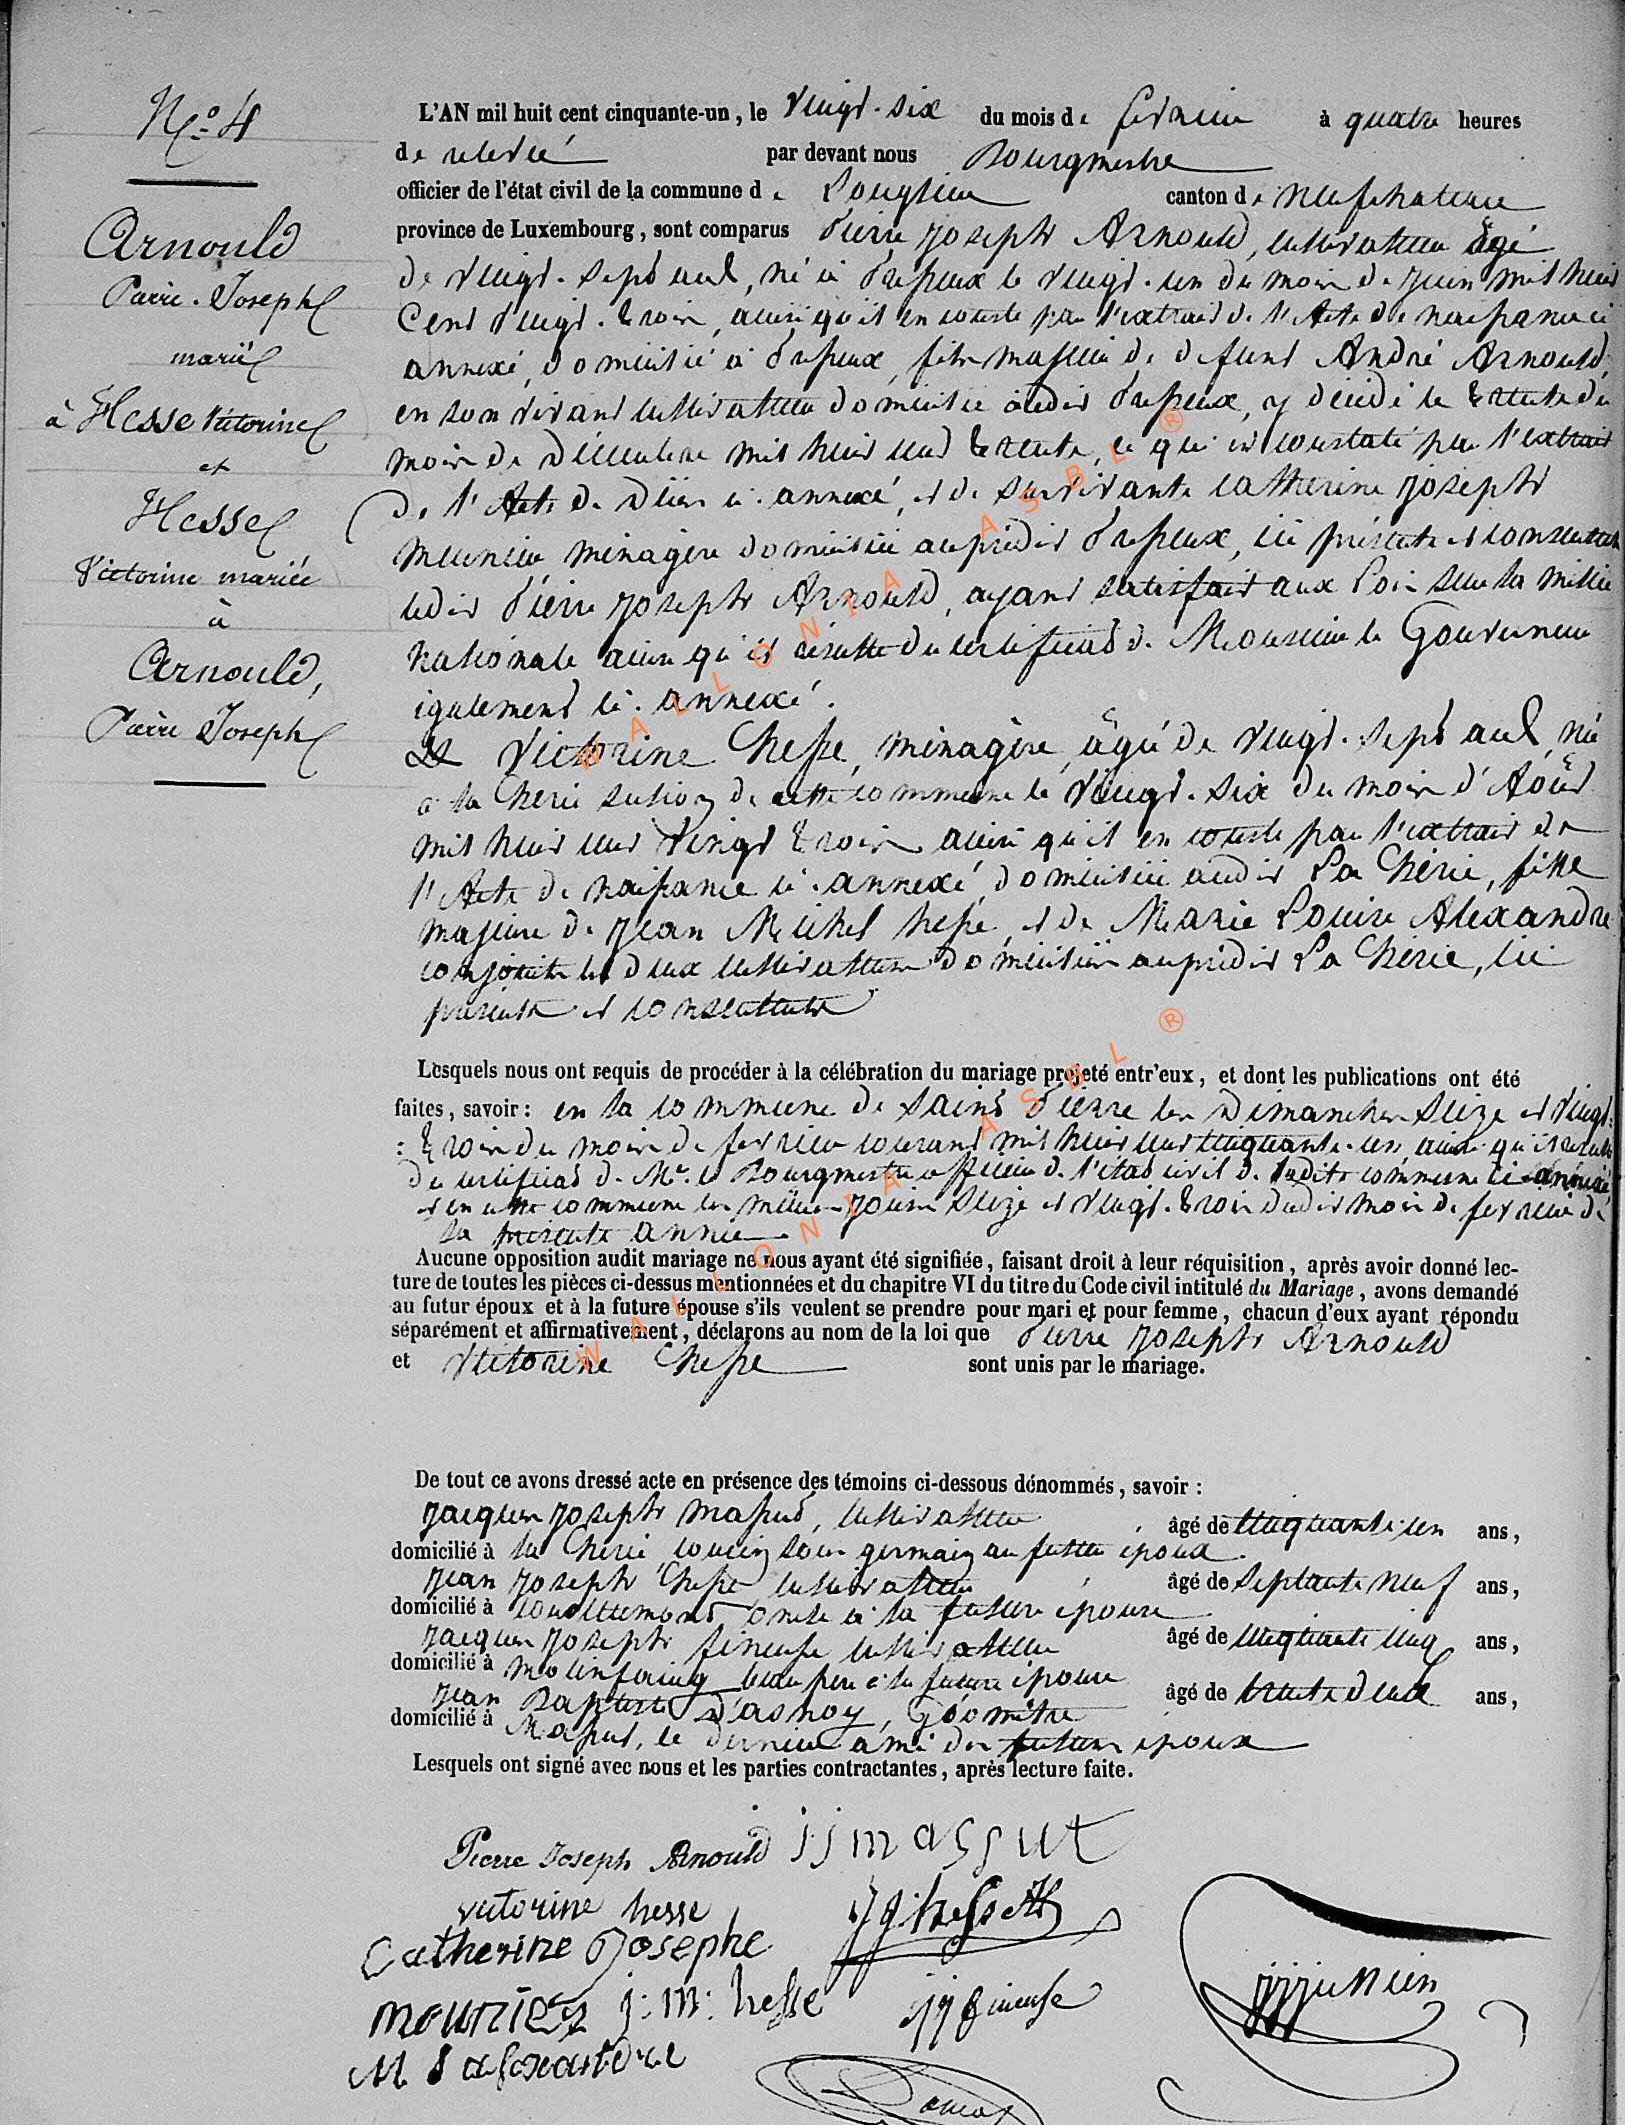 N.º 4
Arnould
Pierre-Joseph
marié
à Hesse Victorine
et
Hesse
Victorine mariée
à
Arnould,
Pierre Joseph
L'AN mil huit cent cinquante-un, le vingt-six du mois de février à quatre heures
de relevée par devant nous Bourgmestre
officier de l'état civil de la commune de Longlier canton de Neufchateau
province de Luxembourg, sont comparus Pierre Joseph Arnould, cultivateur âgé
de vingt-sept ans, né à le vingt-un du mois de juin mil huit
cent vingt-trois, ainsi qu'il en conste par l'extrait de l'Acte de naissance ci
annexé, domicilié à fils majeur de defunt André Arnould,
en son vivant cultivateur domicilié audit y décédé le trente du
mois de Décembre mil huit cent trente, ce qui est constaté par l'extrait
de l'Acte de Décès ci-annexé, et de survivante Catherine Joseph
Meunier ménagère domiciliée au prédit ici présente et consentante
ledit Pierre Joseph Arnould, ayant satisfait aux Lois sur la milice
Nationale ainsi qu'il résulte du certificat de Monsieur le Gouverneur
également ci-annexé.
Et Victorine Hesse, ménagère, âgée de vingt-sept ans, née
à la Hérie section de cette commune le vingt-six du mois d'Août
mil huit cent vingt trois ainsi qu'il en conste par l'extrait de
l'Acte de naissance ci-annexé, domiciliée audit La Hérie, fille
majeure de Jean Michel Hesse, et de Marie Louise Alexandre
conjoints les deux cultivateurs domiciliés au prédit La Hérie, ici
présents et consentants
Lesquels nous ont requis de procéder à la célébration du mariage projeté entr'eux, et dont les publications ont été
faites, savoir: en la commune de Saint Pierre les Dimanches seize et vingt-
: trois du mois de février courant mil huit cent cinquante-un, ainsi qu'il résulte
du certificat de Mr. le Bourgmestre officier de l'état civil de ladite commune ci-annexé
et en cette commune les mêmes jours seize et vingt-trois dudit mois de février de
la présente année
Aucune opposition audit mariage ne nous ayant été signifiée, faisant droit à leur réquisition, après avoir donné lec-
ture de toutes les pièces ci-dessus mentionnées et du chapitre VI du titre du Code civil intitulé du Mariage, avons demandé
au futur époux et à la future épouse s'ils veulent se prendre pour mari et pour femme, chacun d'eux ayant répondu
séparément et affirmativement, déclarons au nom de la loi que Pierre Joseph Arnould
et Victorine Hesse sont unis par le mariage.
De tout ce avons dressé acte en présence des témoins ci-dessous dénommés, savoir:
Jacques Joseph Massut, cultivateur âgé de cinquante-un ans,
domicilié à la Hérie, cousin sous germain au futur époux
Jean Joseph Hesse, cultivateur âgé de septante neuf ans,
domicilié à oncle à la future épouse
Jacques Joseph cultivateur âgé de cinquante cinq ans,
domicilié à Molinfaing beau père à la future épouse
Jean Baptiste D'asnoy, Géomètre âgé de trente deux ans,
domicilié à Massul, le dernier ami des futurs époux
Lesquels ont signé avec nous et les parties contractantes, après lecture faite.
Pierre Joseph Arnould j j massut
victorine hesse
Catherine Josephe
meunier j: m: hesse
M L alexandre
WALLONIA ASBL ®
WALLONIA ASBL ®